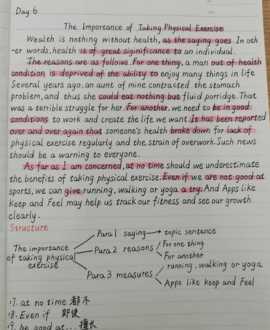 Day 6
The Importance of Taking Physical Exercise
Wealth is nothing without health, as the saying goes. In oth
-er words, health is of great significance to an individual.
The reasons are as follows. For one thing, a man out of health
condition is deprived of the ability to enjoy many things in life
Several years ago, an aunt of mine contracted the stomach
problem, and thus she could eat nothing but fluid porridge. That
was a terrible struggle for her. For another, we need to be in good
conditions to work and create the life we want. It has been reported
over and over again that someone's health broke down for lack of
physical exercise regularly and the strain of overwork. Such news
should be a warning to everyone.
As far as I am concerned, at no time should we underestimate
the benefits of taking physical exercise. Even if we are not good at
sports, we can give running, walking or yoga a try. And Apps like
keep and Feel may help us track our fitness and see our growth
clearly.
Structure
Para1 saying → topic sentence
The importance
of taking physical
exercise
Para 2 reasons
For one thing
For another
Para 3 measures
running, walking or yoga
Apps like keep and Feel
17. at no time 都不
18. Even if 即使
19. be good at... 擅长